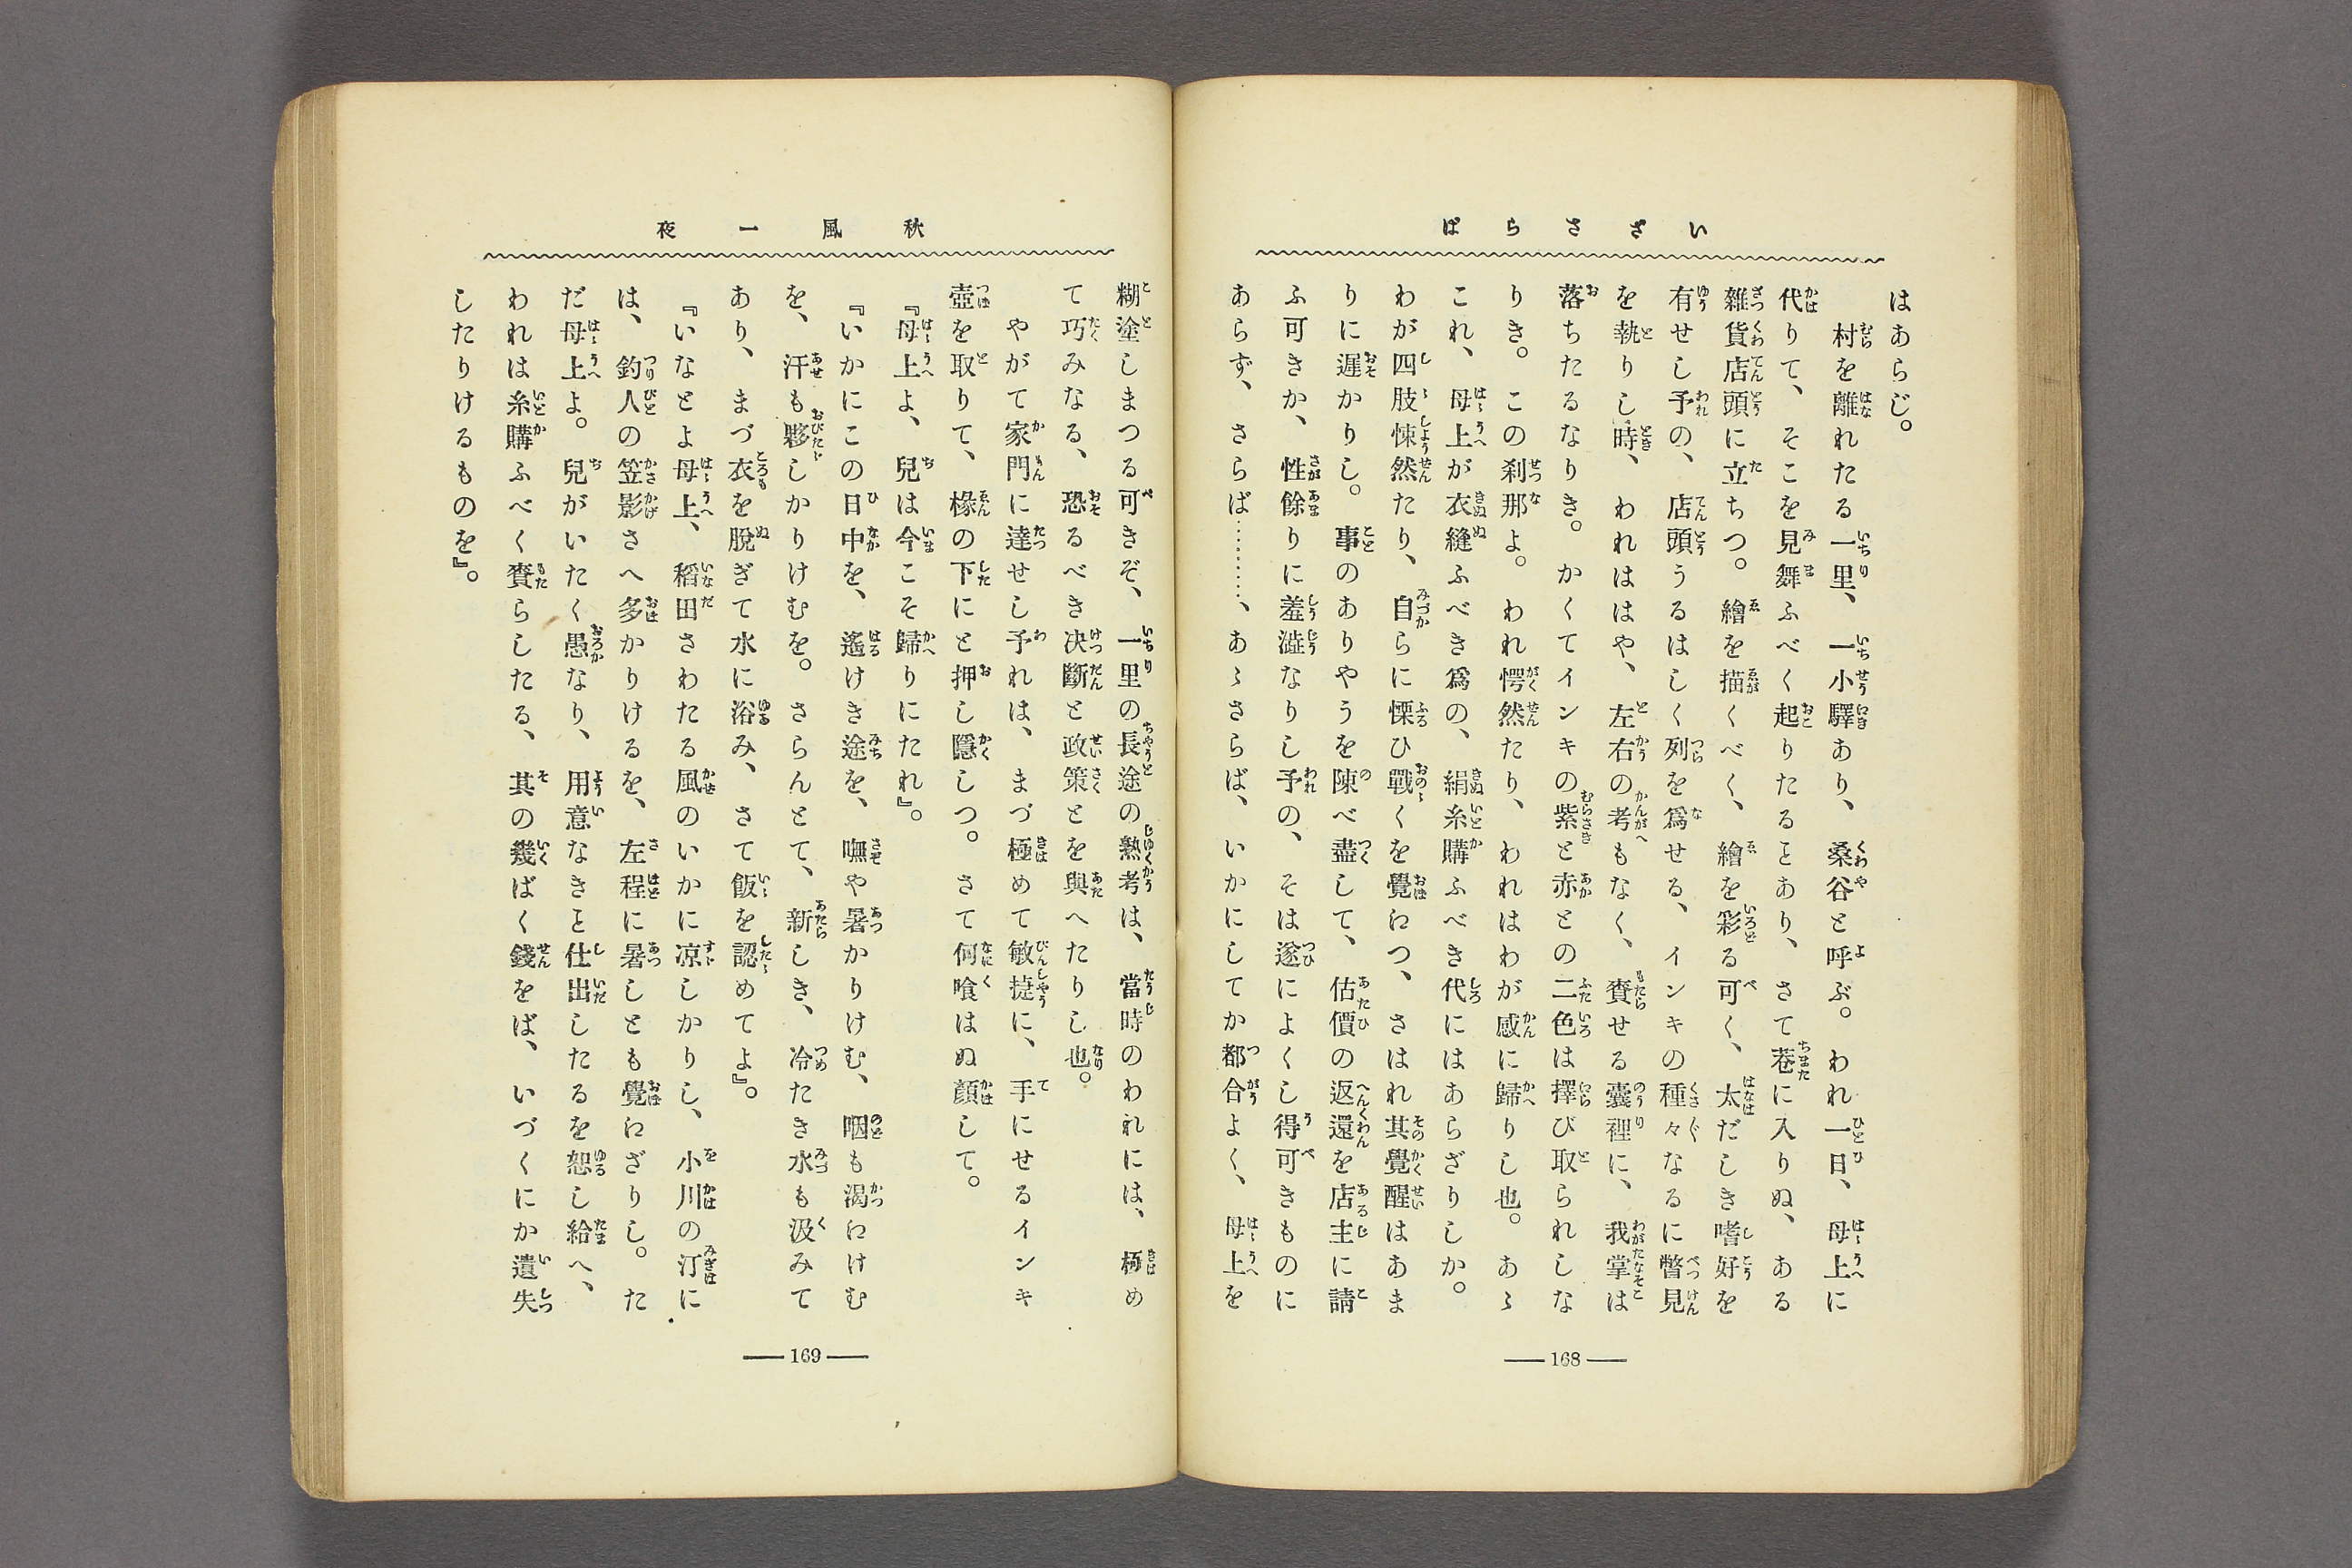 いざさらば
はあらじ。
村を離れたる一里、一小驛あり、桑谷と呼ぶ。われ一日、母上に
代りて、そこを見舞ふべく起りたることあり、さて巷に入りぬ、ある
雜貨店頭に立ちつ。繪を描くべく、繪を彩る可く、太だしき嗜好を
有せし予の、店頭うるはしく列を爲せる、インキの種々なるに瞥見
を執りし時、われははや、左右の考もなく、賚せる嚢裡に、我掌は
落ちたるなりき。かくてインキの紫と赤との二色は擇び取られしな
りき。この刹那よ。われ愕然たり、われはわが感に歸りし也。あゝ
これ、母上が衣縫ふべき爲の、絹糸購ふべき代にはあらざりしか。
わが四肢悚然たり、自らに慄ひ戰くを覺えつ、さはれ其覺醒はあま
りに遲かりし。事のありやうを陳べ盡して、估價の返還を店主に請
ふ可きか、性餘りに羞澁なりし予の、そは遂によくし得可きものに
あらず、さらば………、あゝさらば、いかにしてか都合よく、母上を
168
秋風一夜
糊塗しまつる可きぞ、一里の長途の熟考は、當時のわれには、極め
て巧みなる、恐るべき决斷と政策とを與へたりし也。
やがて家門に達せし予れは、まづ極めて敏捷に、手にせるインキ
壺を取りて、椽の下にと押し隱しつ。さて何喰はぬ顔して。
『母上よ、兒は今こそ歸りにたれ』。
『いかにこの日中を、遙けき途を、嘸や暑かりけむ、咽も渴えけむ
を、汗も夥しかりけむを。さらんとて、新しき、冷たき水も汲みて
あり、まづ衣を脫ぎて水に浴み、さて飯を認めてよ』。
『いなとよ母上、稻田さわたる風のいかに凉しかりし、小川の汀に
は、釣人の笠影さへ多かりけるを、左程に暑しとも覺えざりし。た
だ母上よ。兒がいたく愚なり、用意なきと仕出したるを恕し給へ、
われは糸購ふべく賚らしたる、其の幾ばく錢をば、いづくにか遺失
したりけるものを』。
169